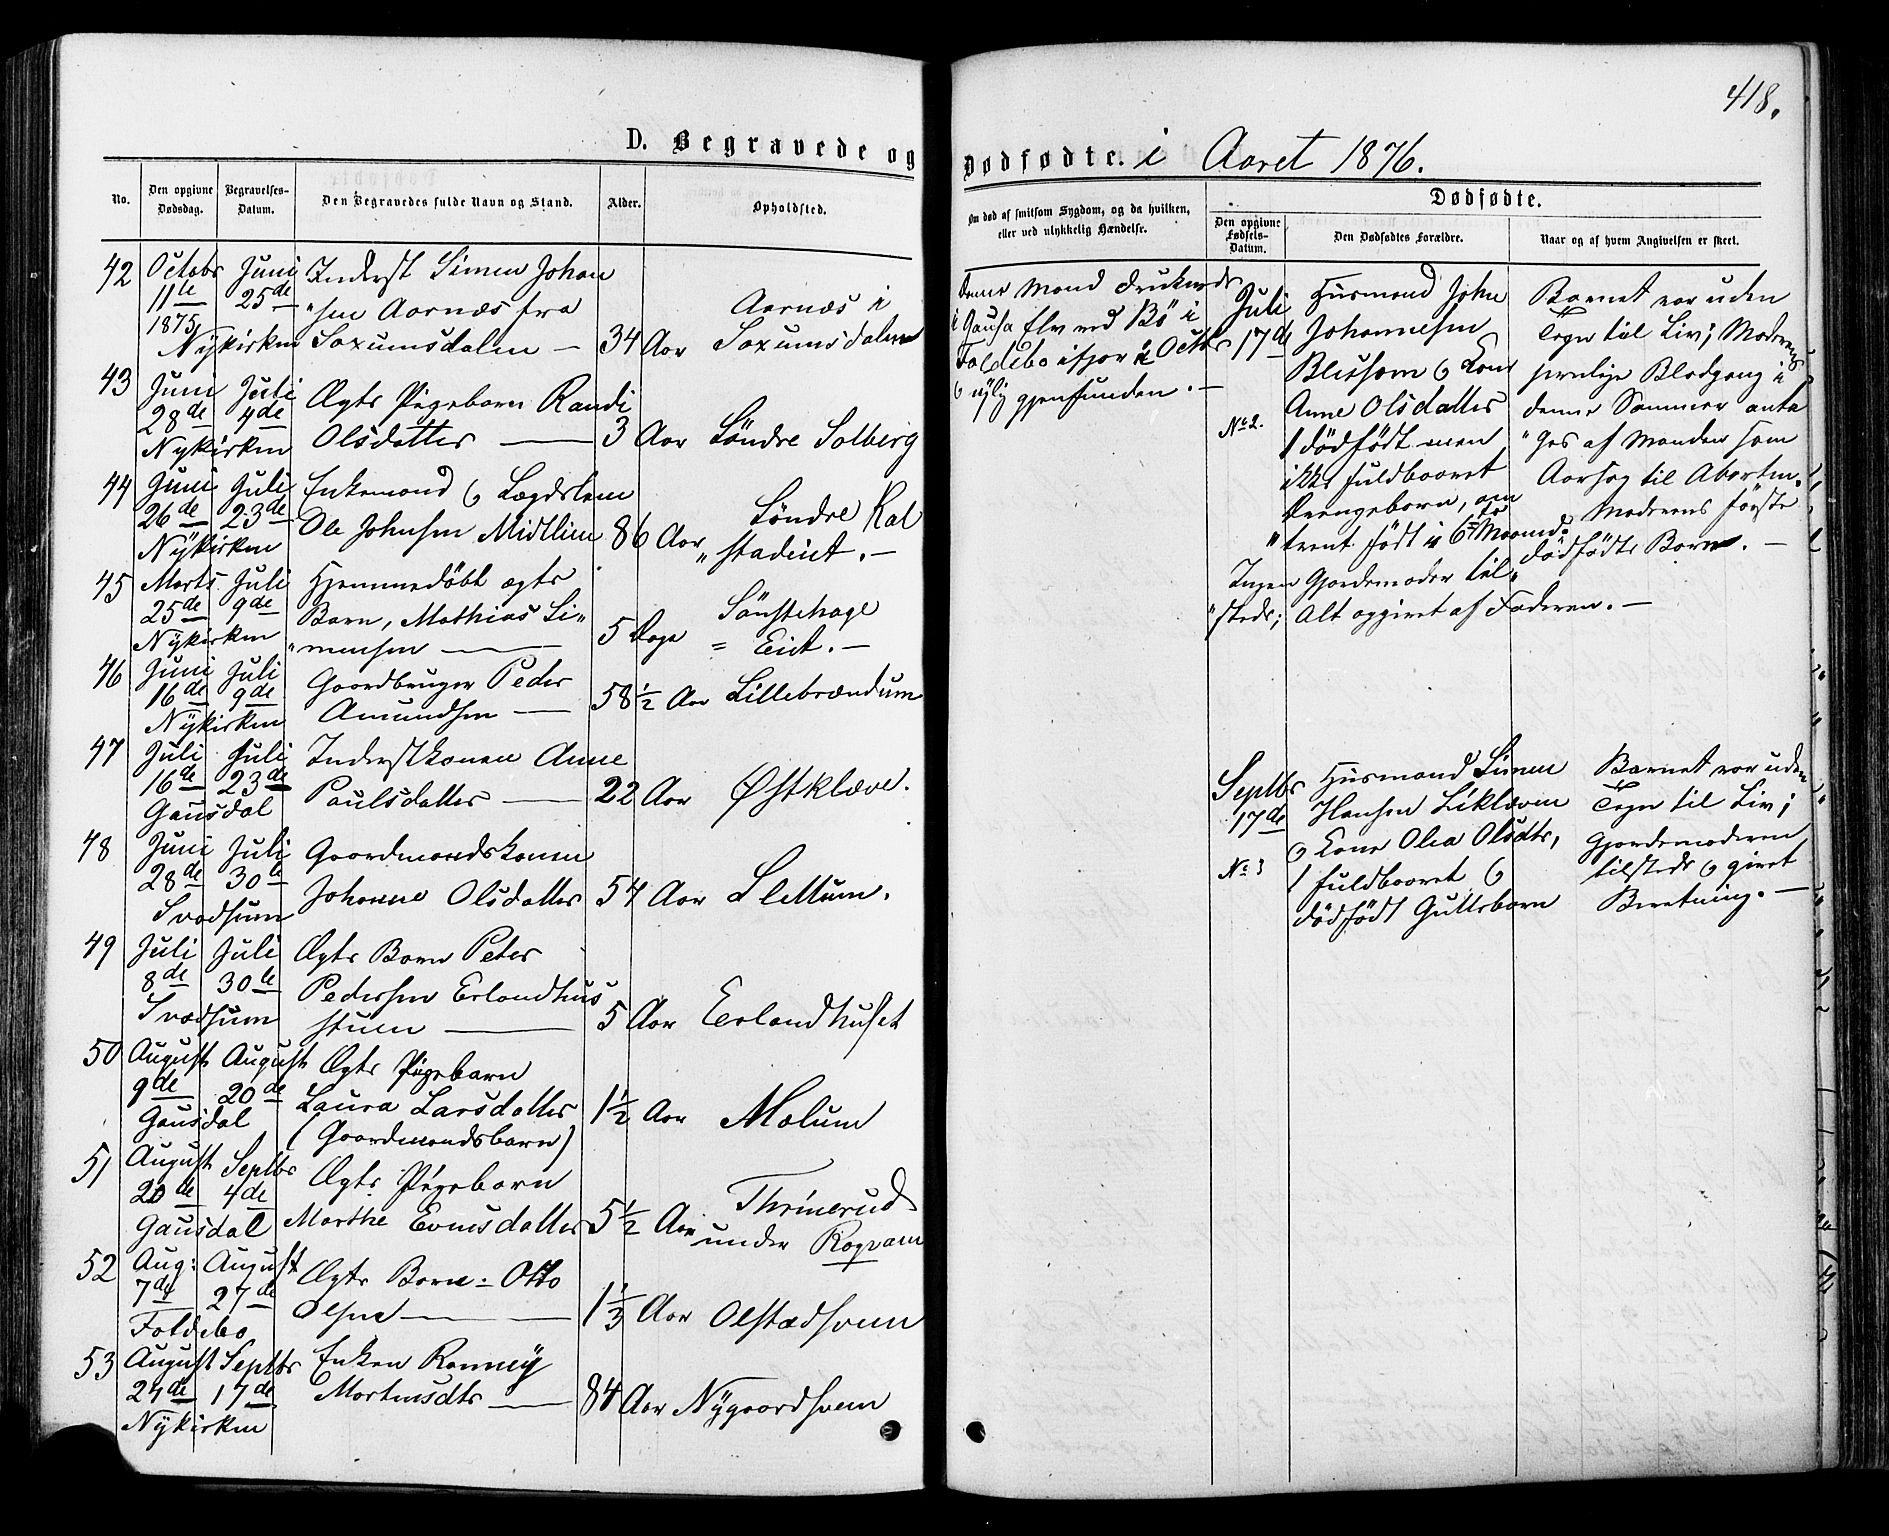 418.
D. Begravede og Dødfødte. i Aaret 1876.
No.
Den opgivne Dødsdag.
Begravelses-Datum.
Den Begravedes fulde Navn og Stand.
Alder.
Opholdsted.
Om død af smitsom Sygdom, og da hvilken, eller ved ulykkelig Hændelse.
Dødfødte.
Den opgivne Fødsels-Datum.
Den Dødfødtes Forældre.
Naar og af hvem Angivelsen er skeet.
42 Octobr Juni Inderst Simen Johan
11te 25de "sen Aarnæs fra Aarnæs i
1875, Nykirken Saxumsdalen — 34 Aar Saxumsdalen
43 Juni Juli Ægte Pigebarn Randi
28de 4de Olsdatter — 3 Aar Søndre Solberg
Nykirken
44 Juni Juli Enkemand & Lægdslem
26de 23de Ole Johnsen Midtlien 86 Aar Søndre Kal
Nykirken "stadeiet. —
45 Marts Juli Hjemmedøbt ægte
25de 9de Barn, Mathias Si" Sønstehage
Nykirken "mensen — 5 Dage = Eiet. —
46 Juni Juli Gaardbruger Peder
16de 9de Amundsen — 58 1/2 Aar Lillebrændum
Nykirken
47 Juli Juli Inderstkonen Anne
16de 23de Paulsdatter — 22 Aar Østklæve.
Gausdal
48 Juni Juli Gaardmandskonen
28de 30te Johanne Olsdatter 54 Aar Slettum.
Svadsum
49 Juli Juli Ægte Barn Peter
8de 30te Pedersen Erlandhus
Svadsum stuen — 5 Aar Erlandhuset
50 August August Ægte Pigebarn
9de 20de Laura Larsdatter 1 1/2 Aar Molum
Gausdal (Gaardmandsbarn)
51 August Septbr Ægte Pigebarn
20de 4de Marthe Evensdatter 5 1/2 Aar Thrinerud
Gausdal under Rogvam
52 Aug: August Ægte Barn: Otto
7de 27de Olsen — 1 1/3 Aar Olstadsveen
Foldebo
53 August Septbr Enken Ronnøy
24de 17de Mortensdtr — 84 Aar Nygaardsveen
Nykirken
Denne Mand druknede
i Gausa Elv ved Bø i
Foldebo ifjor i Octbr
& nylig gjenfunden. —
Juli
17de
No 2.
Husmand John
Johannesen
& Kone
Anne Olsdatter
1 dødfødt men
ikke fuldbaaret
Drengebarn, om
"trent født i 6te Maaned.
Ingen Gjordemoder til"
"stede; Alt opgivet af Faderen. —
Barnet var uden
Tegn til Liv; Moderens
jevnlige Blodgang i
denne Sommer anta
"ges af Manden som
Aarsag til Aborten.
Moderens første
dødfødte Barn. —
Septbr
17de
No 3
Husmand Simen
Hansen Liklæven
& Kone Olea Olsdtr,
1 fuldbaaret &
dødfødt Guttebarn
Barnet var uden
Tegn til Liv;
Gjordemoderen
tilstede & givet
Beretning. —